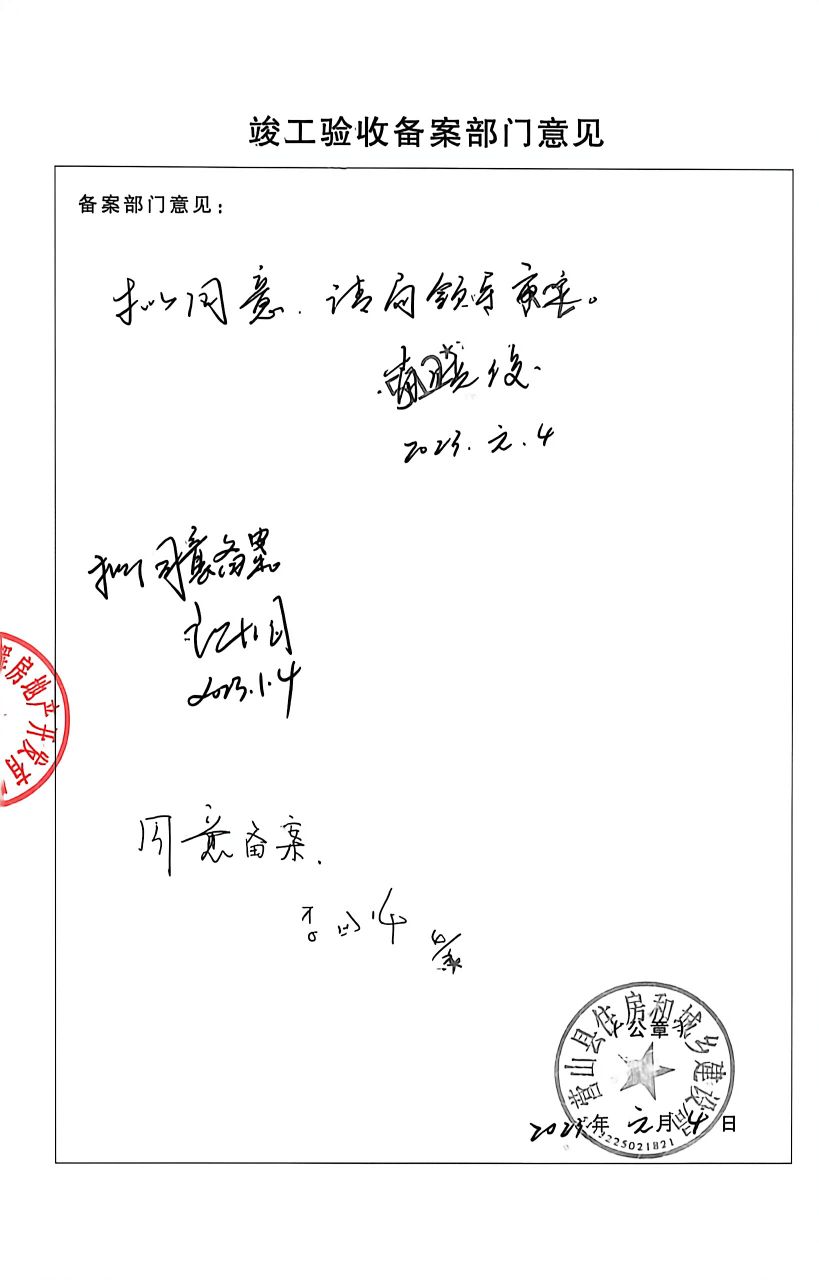 竣工验收备案部门意见
备案部门意见:
拟同意.请局领导审定。
2023.元.4
拟同意备案
2023.1.4
房地产开发有
同意备案.
营山县住房和城乡建设局
公章
2023年元月4日
225021821